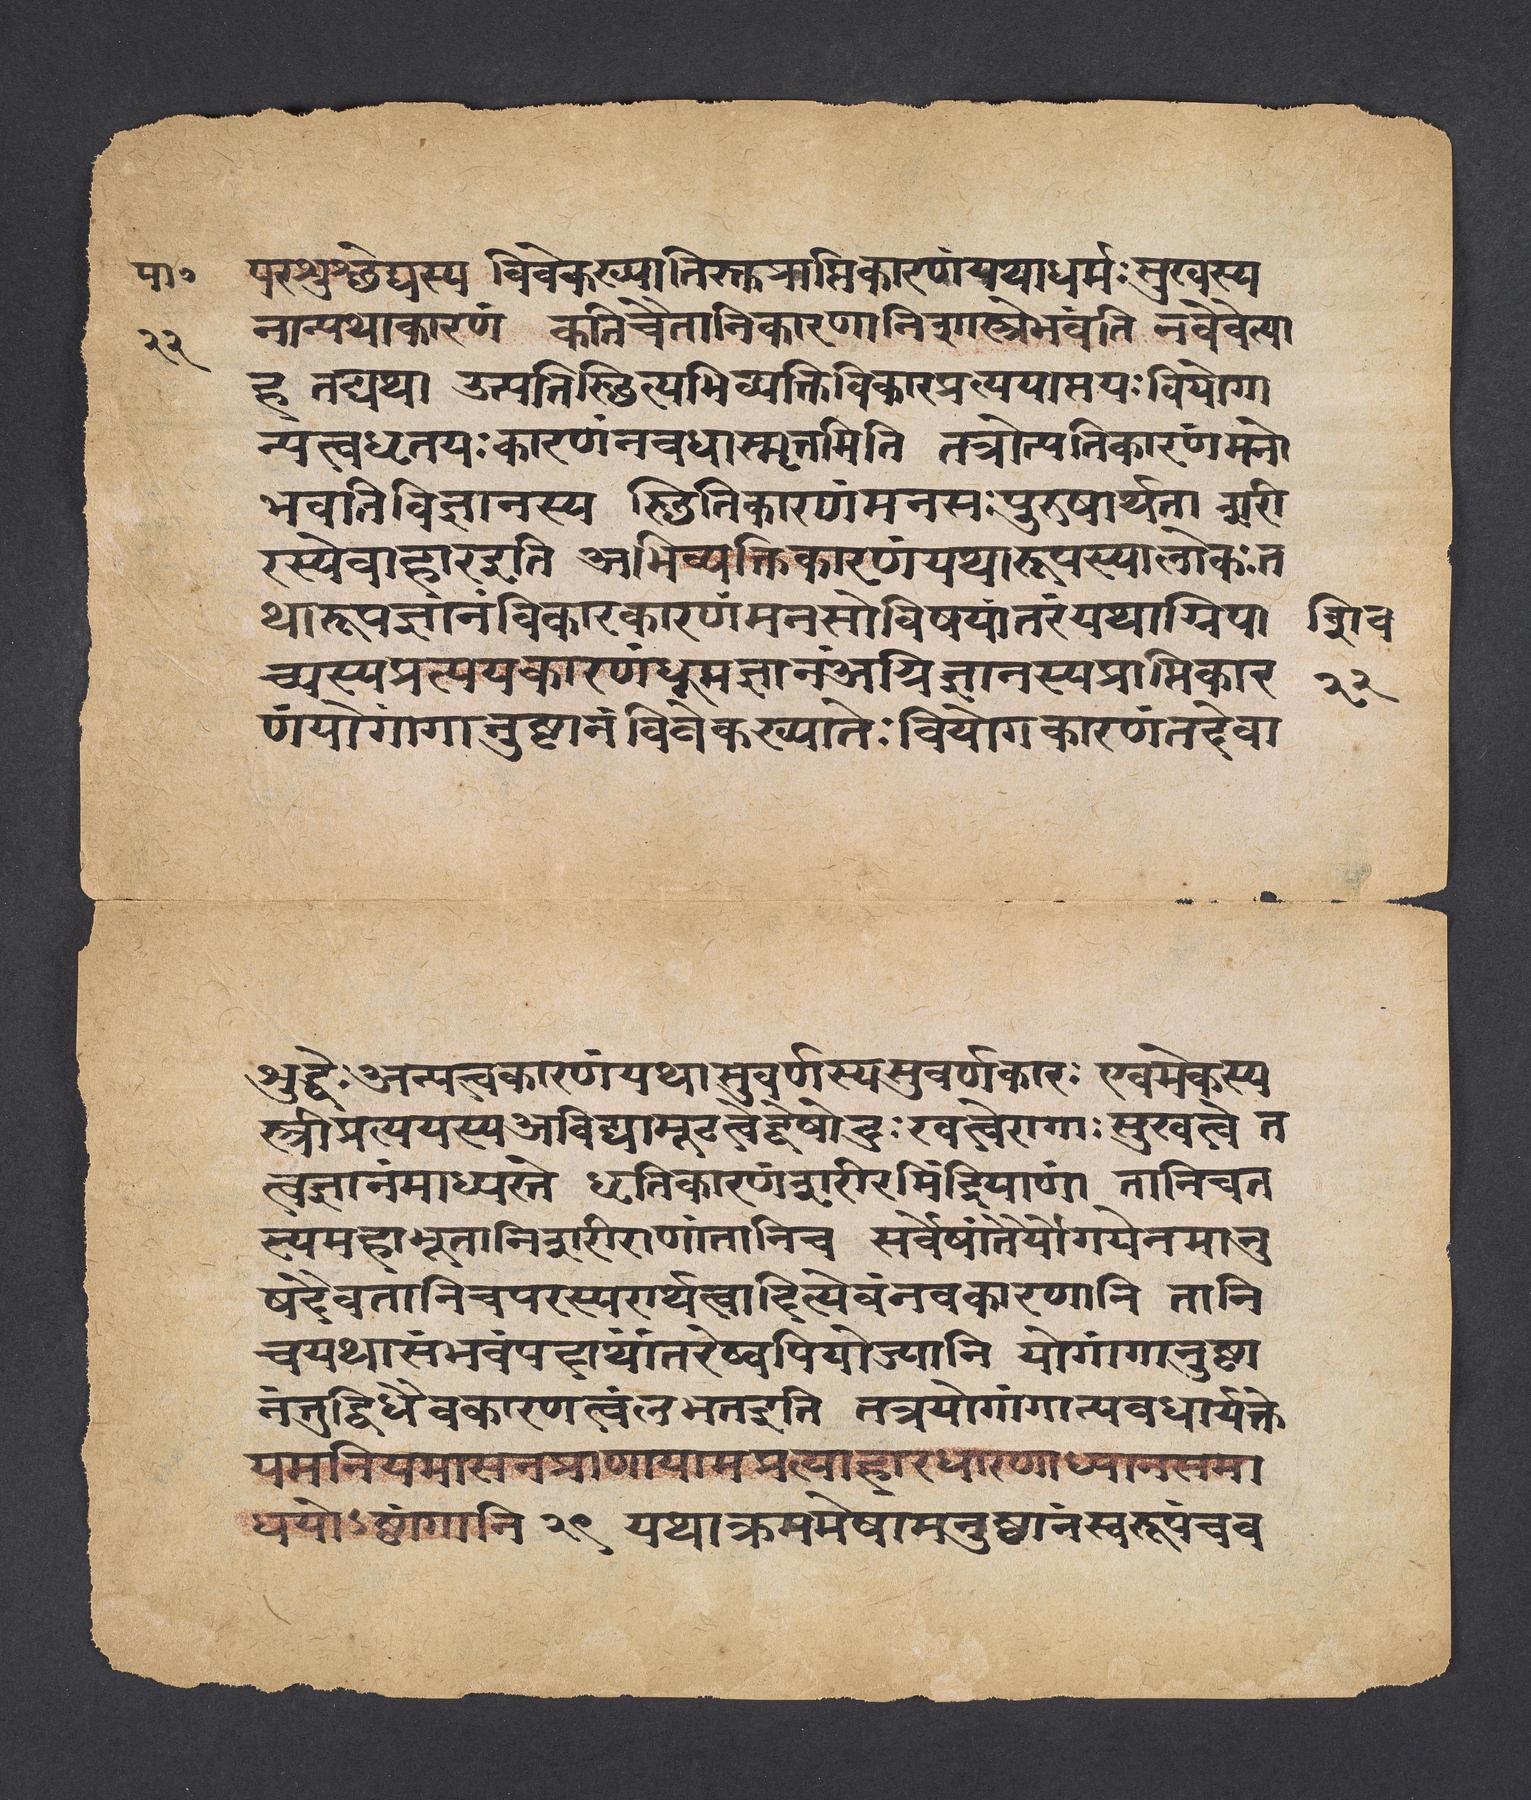 पा॰
२२
परशुश्छेद्यस्य विवेकख्यातिस्तु प्राप्तिकारणंयथाधर्मःसुखस्य
नान्यथाकारणं कतिचैतानिकारणानिशास्त्रेभवंति नवैवेत्या
ह तद्यथा उत्पत्तिस्थित्यभिव्यक्तिविकारप्रत्ययाप्तयःवियोगा
न्यत्वधृतयःकारणंनवधास्मृतमिति तत्रोत्पत्तिकारणंमनो
भवतिविज्ञानस्य स्थितिकारणंमनसःपुरुषार्थता शरी
रस्येवाहारइति अभिव्यक्तिकारणंयथारूपस्यालोकःत
थारूपज्ञानंविकारकारणंमनसोविषयांतरंयथाग्निपा
च्यस्यप्रत्ययकारणंधूमज्ञानंअग्निज्ञानस्यप्राप्तिकार
णंयोगांगानुष्टानंविवेकख्यातेःवियोगकारणंतदेवा
शिव
२२
शुद्धेःअन्यत्त्वकारणंयथासुवर्णस्यसुवर्णकारः एवमेकस्य
स्त्रीप्रत्ययस्यअविद्यामूढत्वेद्वेषोदुःखत्वेरागाःसुखत्वे त
त्वज्ञानंमाध्यस्त्ते धृतिकारणंशरीरमिंद्रियाणां तानिचत
स्यमहाभूतानिशरीराणांतानिच सर्वेषांतैर्यौगयेनमानु
षदैवतानिचपरस्परार्थत्वादित्येवंनवकारणानि तानि
चयथासंभवंपदार्थांतरेष्वपियोज्यानि योगांगानुष्ठा
नंतुद्विधैवकारणत्वंलभतइति तत्रयोगांगान्यवधार्यंत्ते
यमनियमासनप्राणायामप्रत्याहारधारणाध्यानसमा
धयोऽष्टांगानि २९ यथाक्रममेषामनुष्ठानंस्वरूपंचव